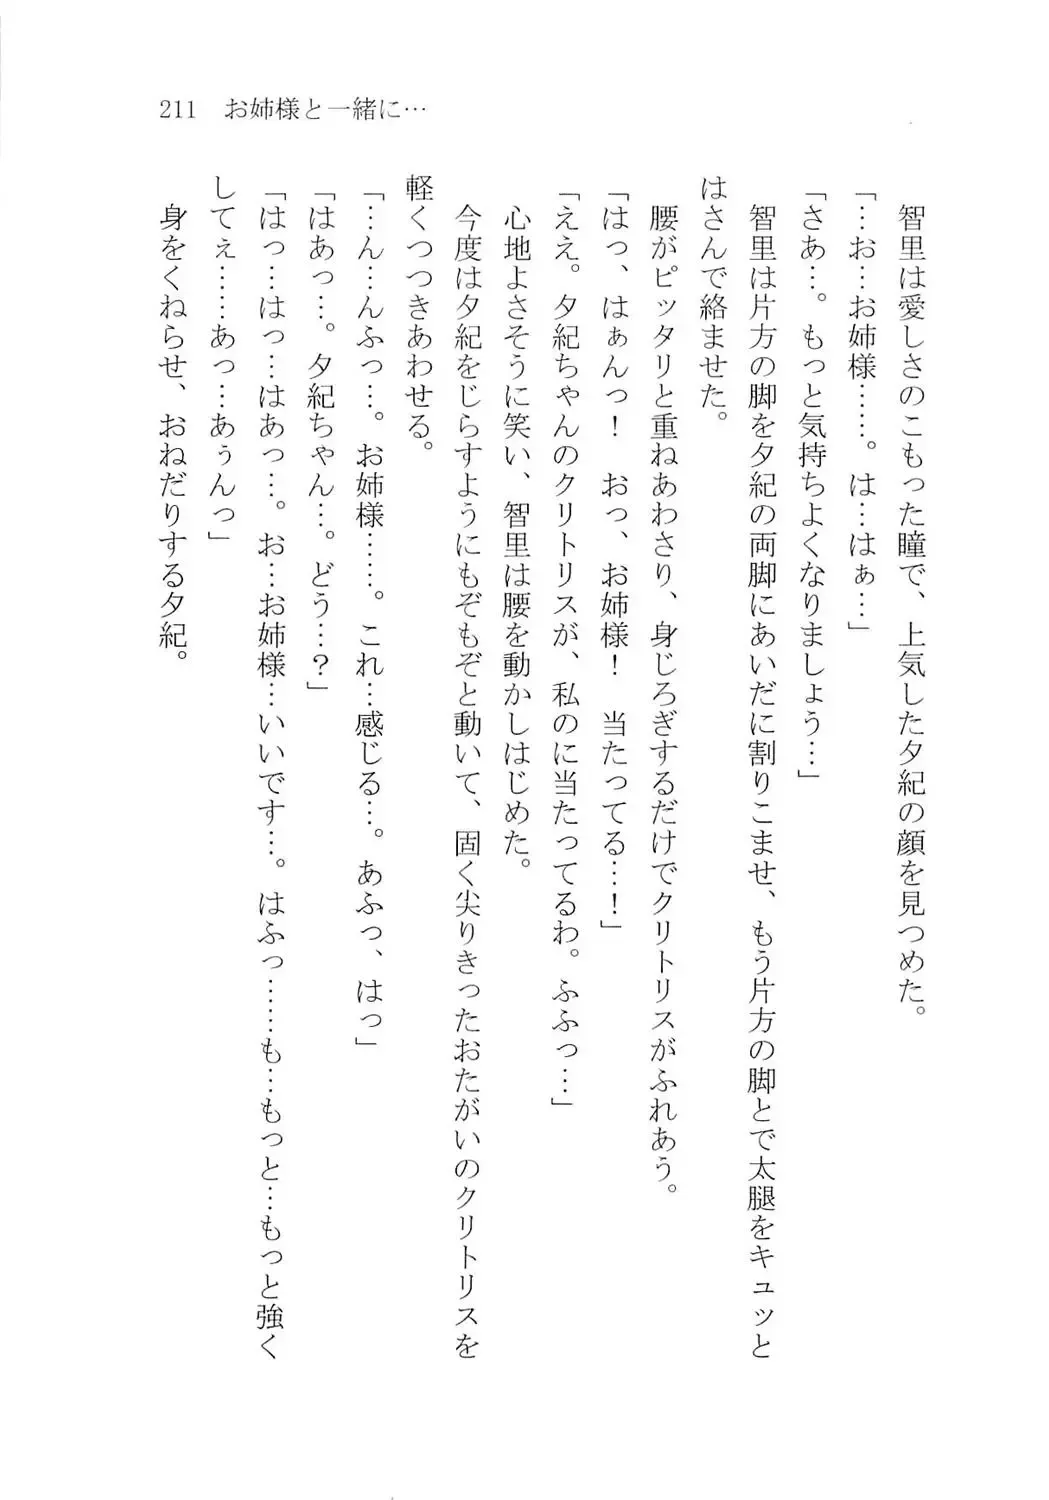 211　お姉様と一緒に…
　智里は愛しさのこもった瞳で、上気した夕紀の顔を見つめた。
「…お…お姉様……。は…はぁ…」
「さあ…。もっと気持ちよくなりましょう…」
　智里は片方の脚を夕紀の両脚にあいだに割りこませ、もう片方の脚とで太腿をキュッと
はさんで絡ませた。
　腰がピッタリと重ねあわさり、身じろぎするだけでクリトリスがふれあう。
「はっ、はぁんっ！　おっ、お姉様！　当たってる…！」
「ええ。夕紀ちゃんのクリトリスが、私のに当たってるわ。ふふっ…」
　心地よさそうに笑い、智里は腰を動かしはじめた。
　今度は夕紀をじらすようにもぞもぞと動いて、固く尖りきったおたがいのクリトリスを
軽くつつきあわせる。
「…ん…んふっ…。お姉様……。これ…感じる…。あふっ、はっ」
「はあっ…。夕紀ちゃん…。どう…？」
「はっ…はっ…はあっ…。お…お姉様…いいです…。はふっ……も…もっと…もっと強く
してぇ……あっ…あぅんっ」
　身をくねらせ、おねだりする夕紀。